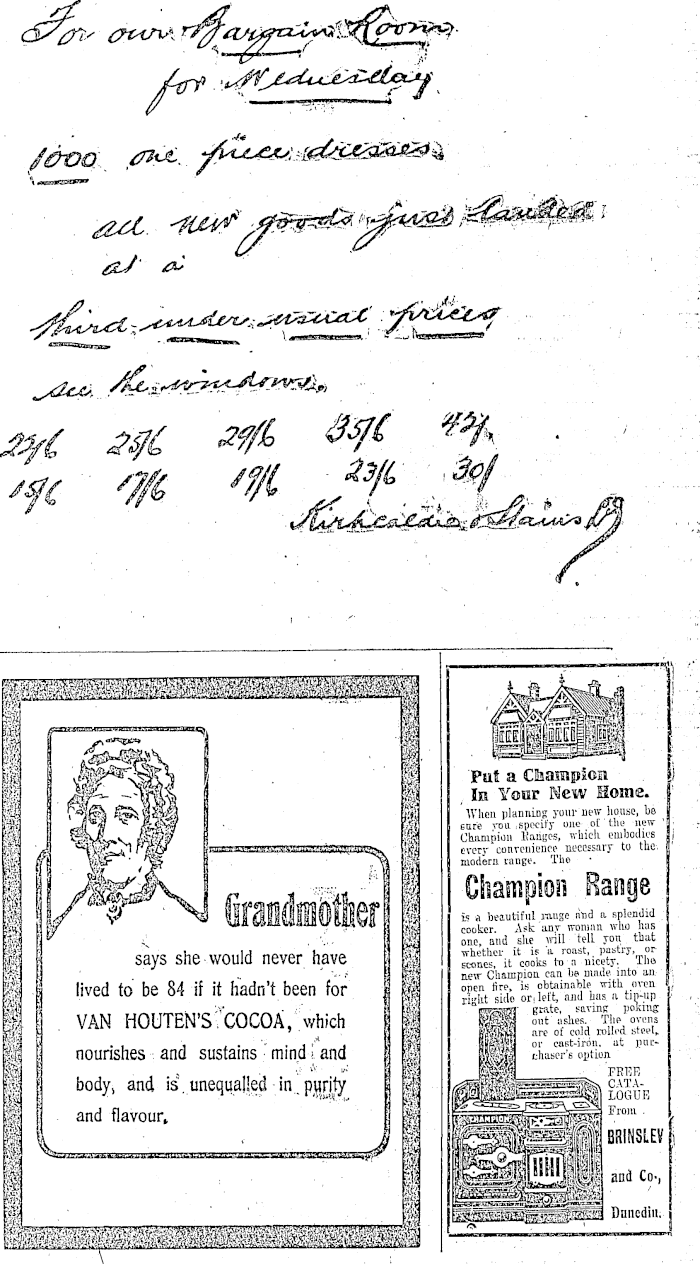 For our Bargain Room
for Wednesday
1000 one piece dresses
all new goods just landed
at a
third under usual prices
see the windows.
25/6 29/6 35/6 42/
15/6 17/6 19/6 23/6 30/
Kirkcaldie & Stains Ld
Grandmother
says she would never have
lived to be 84 if it hadn't been for
VAN HOUTEN'S COCOA, which
nourishes and sustains mind and
body, and is unequalled in purity
and flavour.
Put a Champion
In Your New Home.
When planning your new house, be
sure you specify one of the new
Champion Ranges, which embodies
every convenience necessary to the
modern range. The
Champion Range
is a beautiful range and a splendid
cooker. Ask any woman who has
one, and she will tell you that
whether it is a roast, pastry, or
scones, it cooks to a nicety. The
new Champion can be made into an
open fire, is obtainable with oven
right side or left, and has a tip-up
grate, saving poking
out ashes. The ovens
are of cold rolled steel,
or cast-iron, at pur-
chaser's option
FREE
CATA-
LOGUE
From
CHAMPION
BRINSLEY
and Co.,
Dunedin.